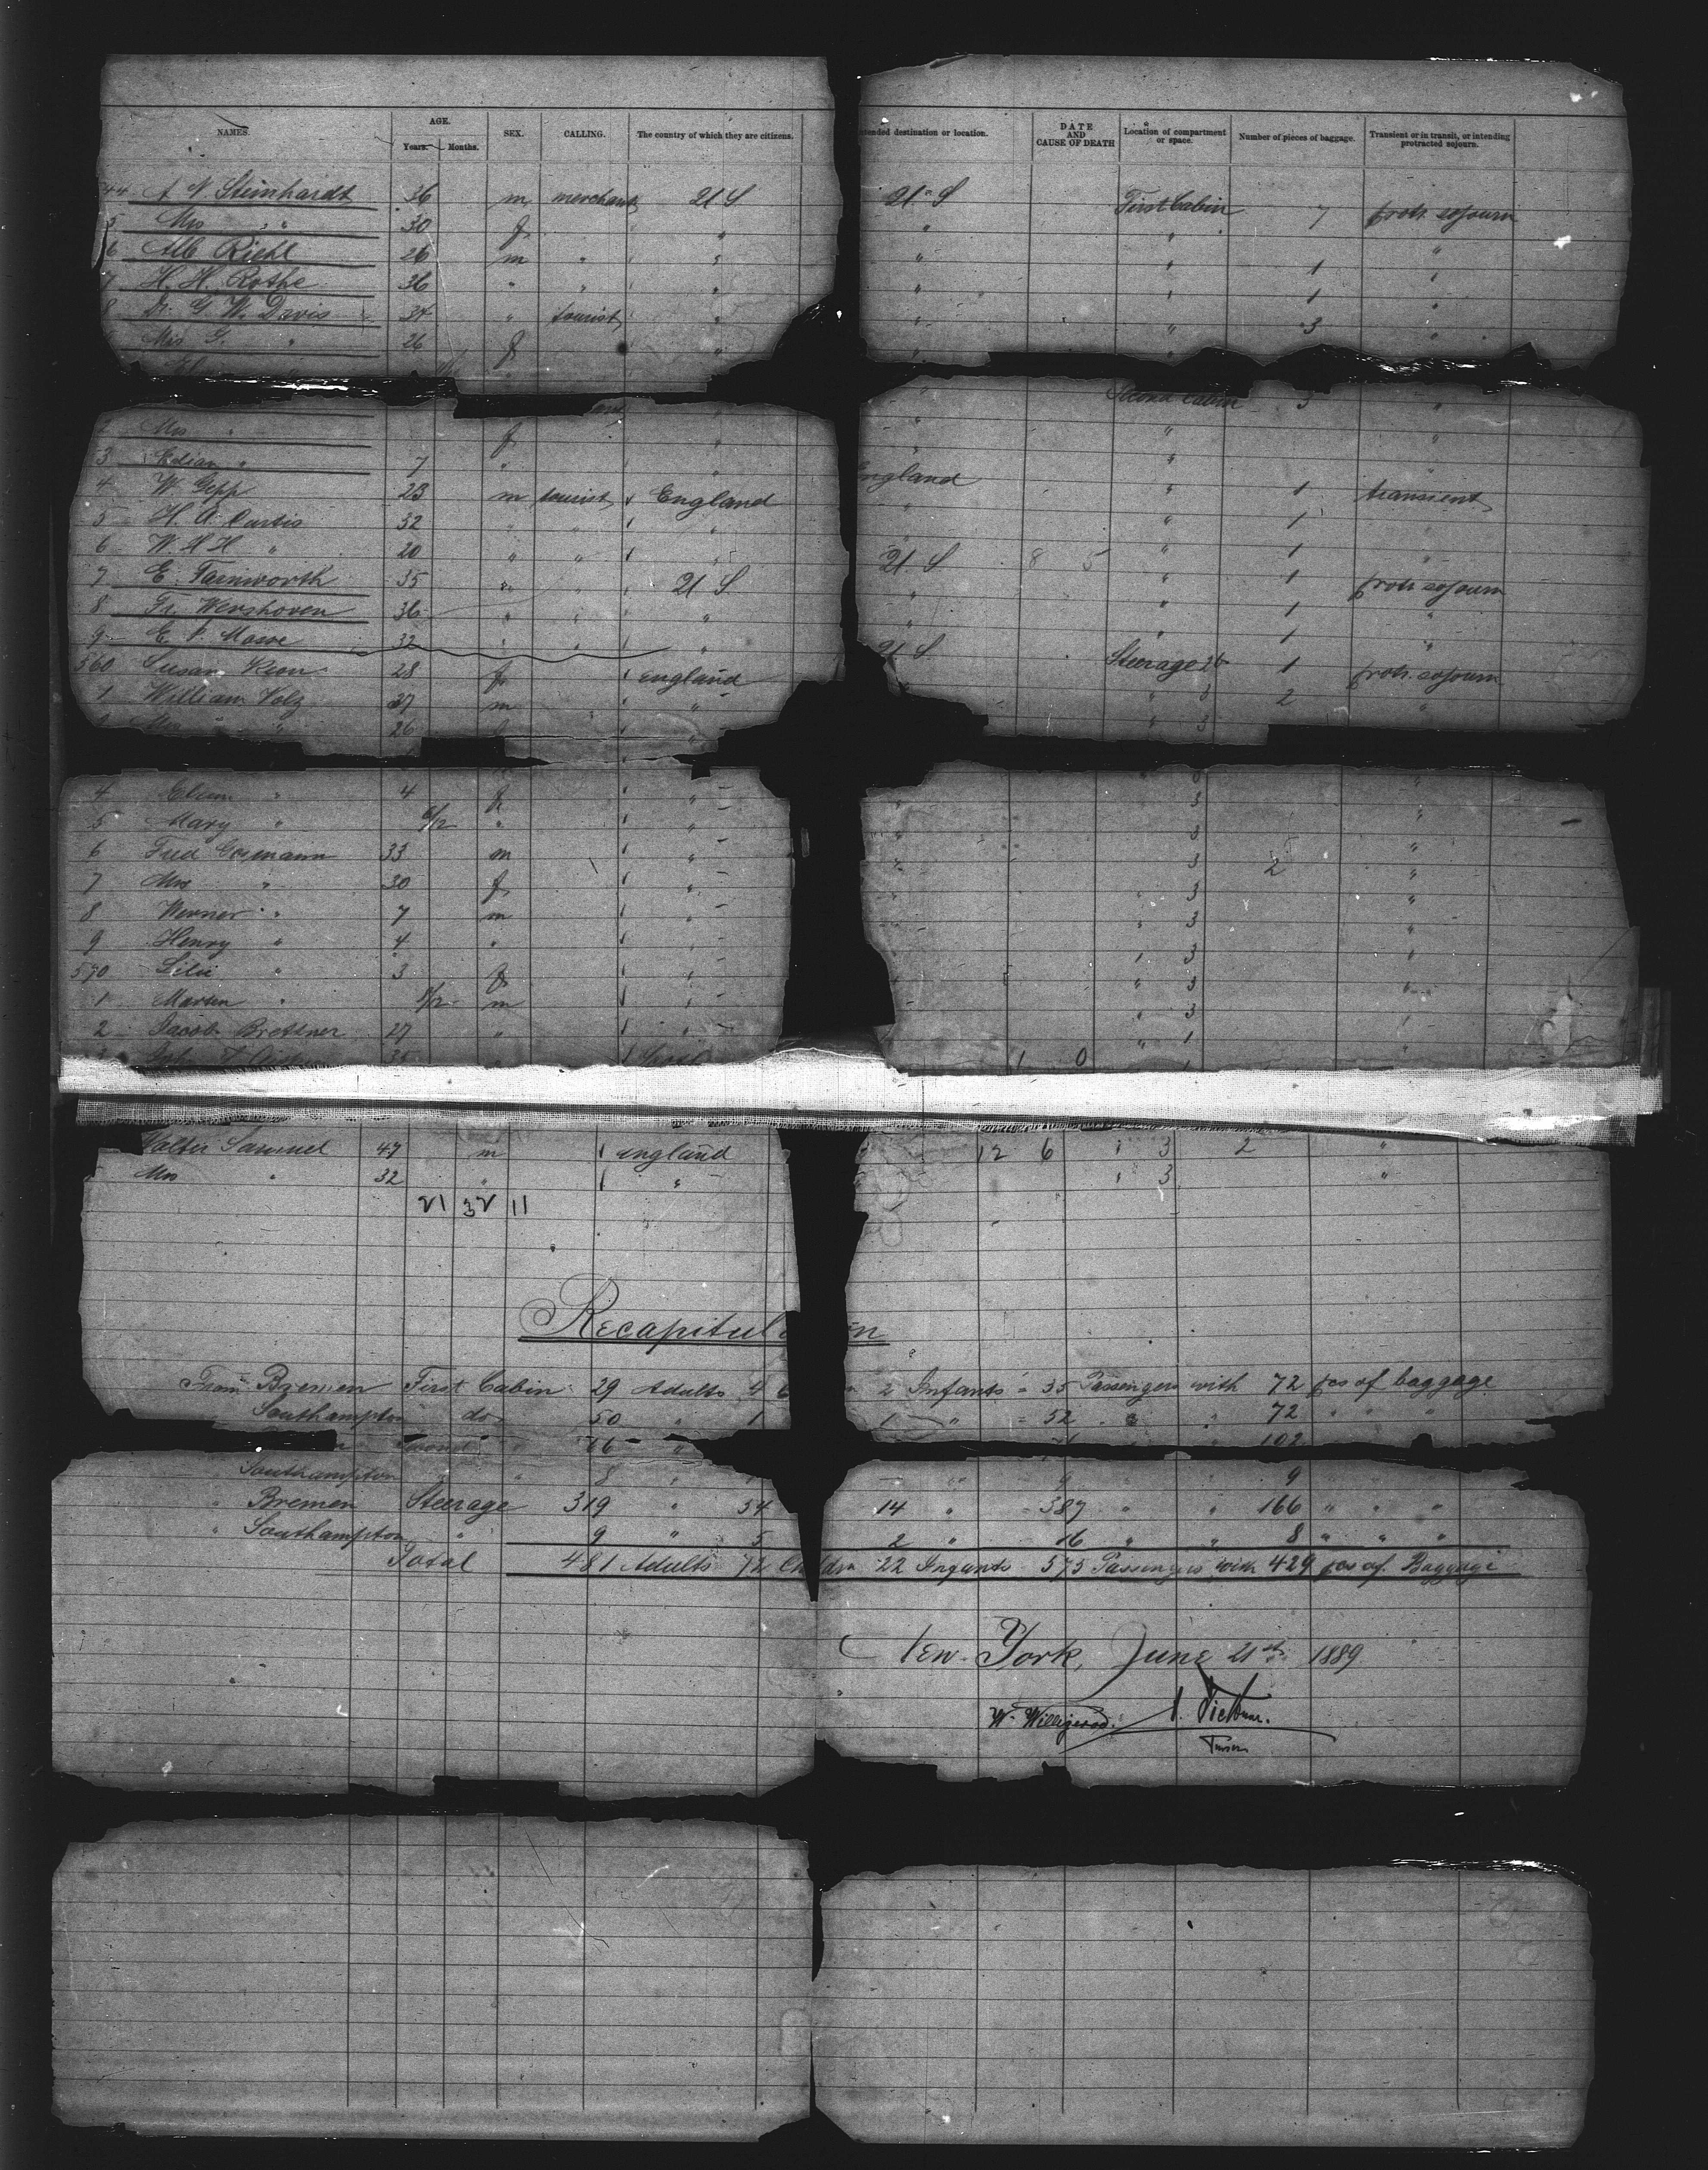 NAMES. AGE. Years. Months. SEX. CALLING. The country of which they are citizens. Intended destination or location. DATE AND CAUSE OF DEATH Location of compartment or space. Number of pieces of baggage. Transient or in transit, or intending protracted sojourn.
44 A N Steinhardt 36 m merchant U S U S First Cabin 7 protr. sojourn
5 Mrs " 30 f " " " "
6 Alb Riehl 26 m " " " " 1 "
7 H. H. Rothe 36 " " " " " 1 "
8 Dr. G W. Davis 34 " tourist " " " 3 "
Mrs G. " 26 f " " "
Second Cabin 3 "
2 Mrs " f " " " "
3 " 7 " " " "
4 W Gepp 23 m tourist England England " 1 transient
5 H. A. Curtis 32 " " " " " 1 "
6 W. H H " 20 " " " " 1 "
7 E. Farnworth 35 " " U S U S 8 5 " 1 protr. sojourn
8 Fr. Wershoven 36 " " " " " 1 "
9 E. P. 32 " " " " 1 "
560 Susan Keon 28 f England U S Steerage 26 1 protr. sojourn
1 William Volz 37 m " " 3 2 "
2 Mrs " 26 f " " 3
4 " 4 f " " 3 "
5 Mary " 6/12 " " " 3 "
6 Fred 33 m " " 3 2 "
7 Mrs " 30 f " 3 "
8 Werner " 7 m " 3 "
9 Henry " 4 " " 3 "
570 Lilli " 3 f " " 3 "
1 Martin " m " " 3
2 Jacob Brettner 27 " " " 1 "
3 John 1 0
Walter Samuel 47 m England 12 6 " 3 2 "
Mrs " 32 " " " 3 "
21 32 11
Recapitulation
From Bremen First Cabin 29 Adults 4 2 Infants = 35 Passengers with 72 pcs of baggage
Southampton do 50 " 1 1 " = 52 " " 72 " " "
Second 102
Southampton " " 8 " 9 " " 9 " "
" Bremen Steerage 319 " 54 14 " 387 " " 166 " " "
" Southampton " 9 " 5 2 " 16 " " 8 " " "
Total 481 Adults 72 Childrn 22 Infants 575 Passengers with 429 pcs of Baggage
New York, June 21st 1889
W. Willigerod.